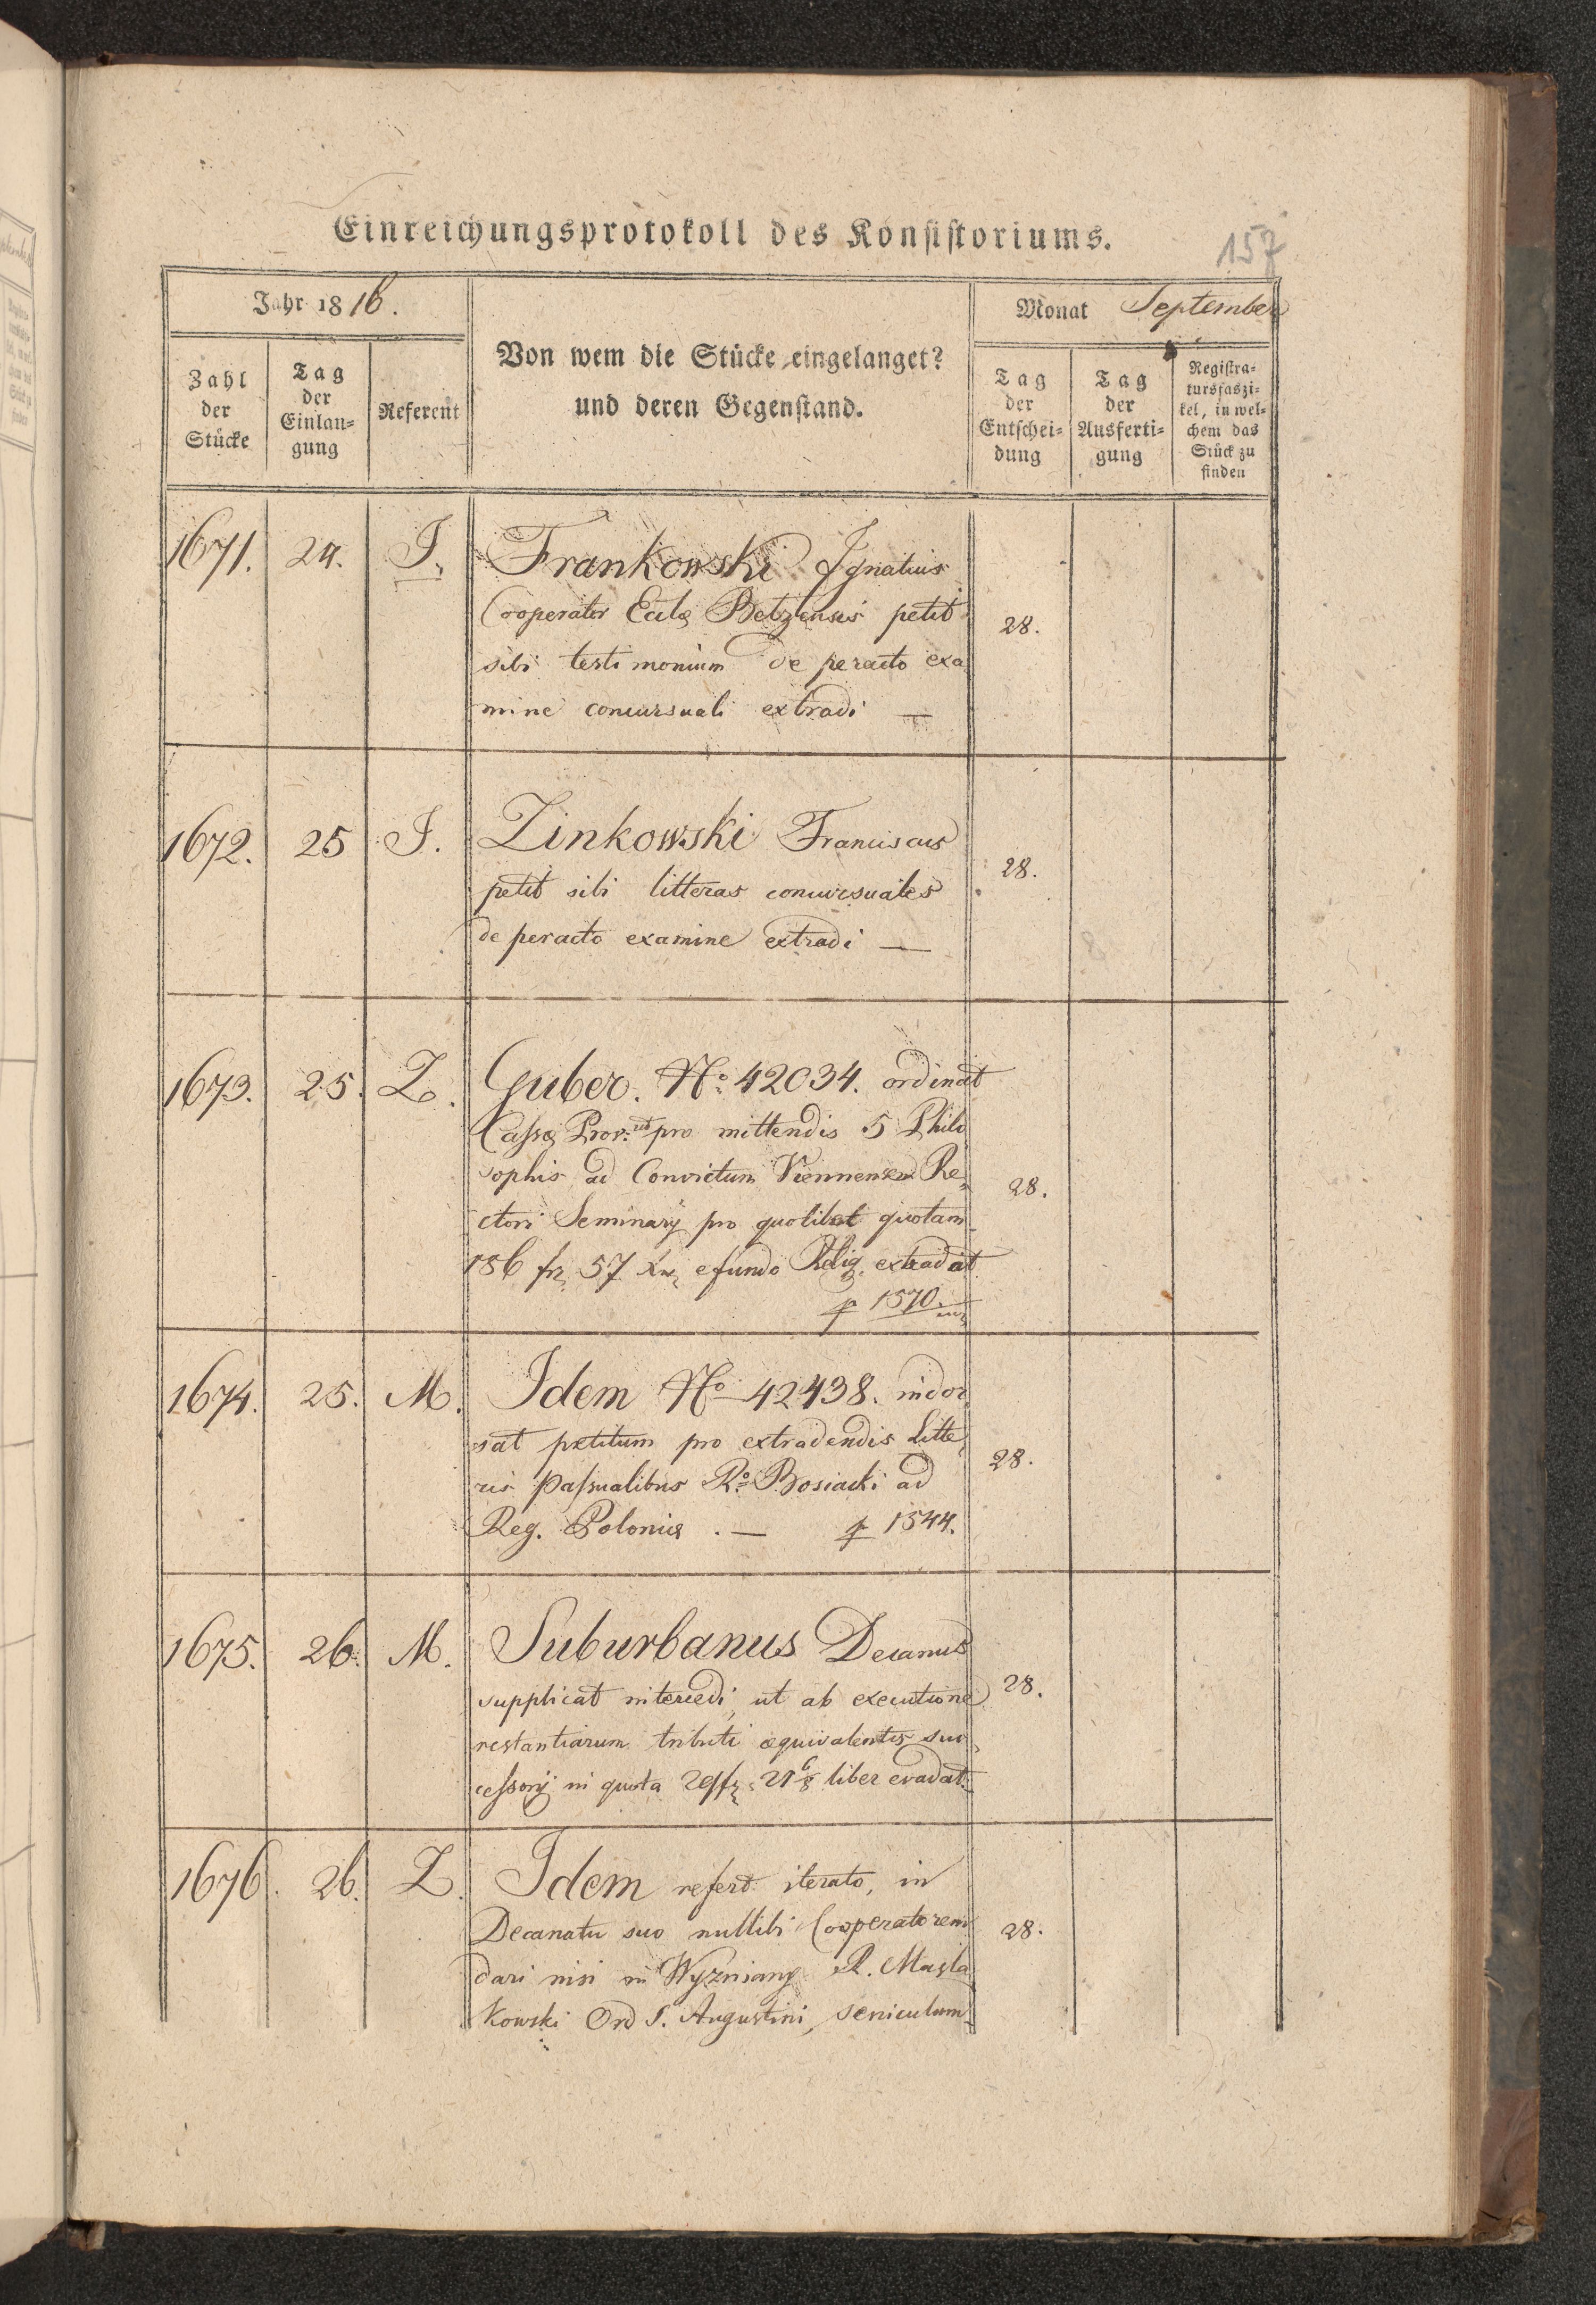 Einreichungsprotokoll des Konsistoriums.
157
Jahr 1816.
Monat September
Von wem die Stücke eingelanget?
und deren Gegenstand.
Zahl der Stücke
Tag der Einlan=gung
Referent
Tag der Entschei=dung
Tag der Ausferti=gung
Registra=tursfaszi=kel, in wel=chem das Stück zu finden
1671. 24. I. Frankowski Ignatius
Cooperator Eccłæ Betzensis petit
28.
sibi testimonium de peracto exa
mine concursuali extradi —
1672. 25 I. Zinkowski Franciscus
28.
petit sibi litteras concursuales
de peracto examine extradi —
1673. 25. Z. Guber. No. 42034. ordinat
Cassæ Prov. ut pro mittendis 5 Philo
sophis ad Convictum Viennensem Re,
28.
ctori Seminarij pro quolibet quotam
186 fr 57 Xr e fundo Relig. extradat
p 1570.
1674. 25. M. Idem No 42438. indor,
sat petitum pro extradendis Litte,
28.
ris passualibus Ro. Bosiacki ad
Reg. Poloniæ . — p 1544.
1675. 26. M. Suburbanus Decanus
supplicat intercedi, ut ab executione
28.
restantiarum tributi æquivalentis suc,
cessorij in quota 29 fr 21 6/8 liber evadat.
1676. 26. Z. Idem refert iterato, in
Decanatu suo nullibi Cooperatorem
28.
dari nisi in Wyzniany R. Masla
kowski Ord S. Augustini, seniculum